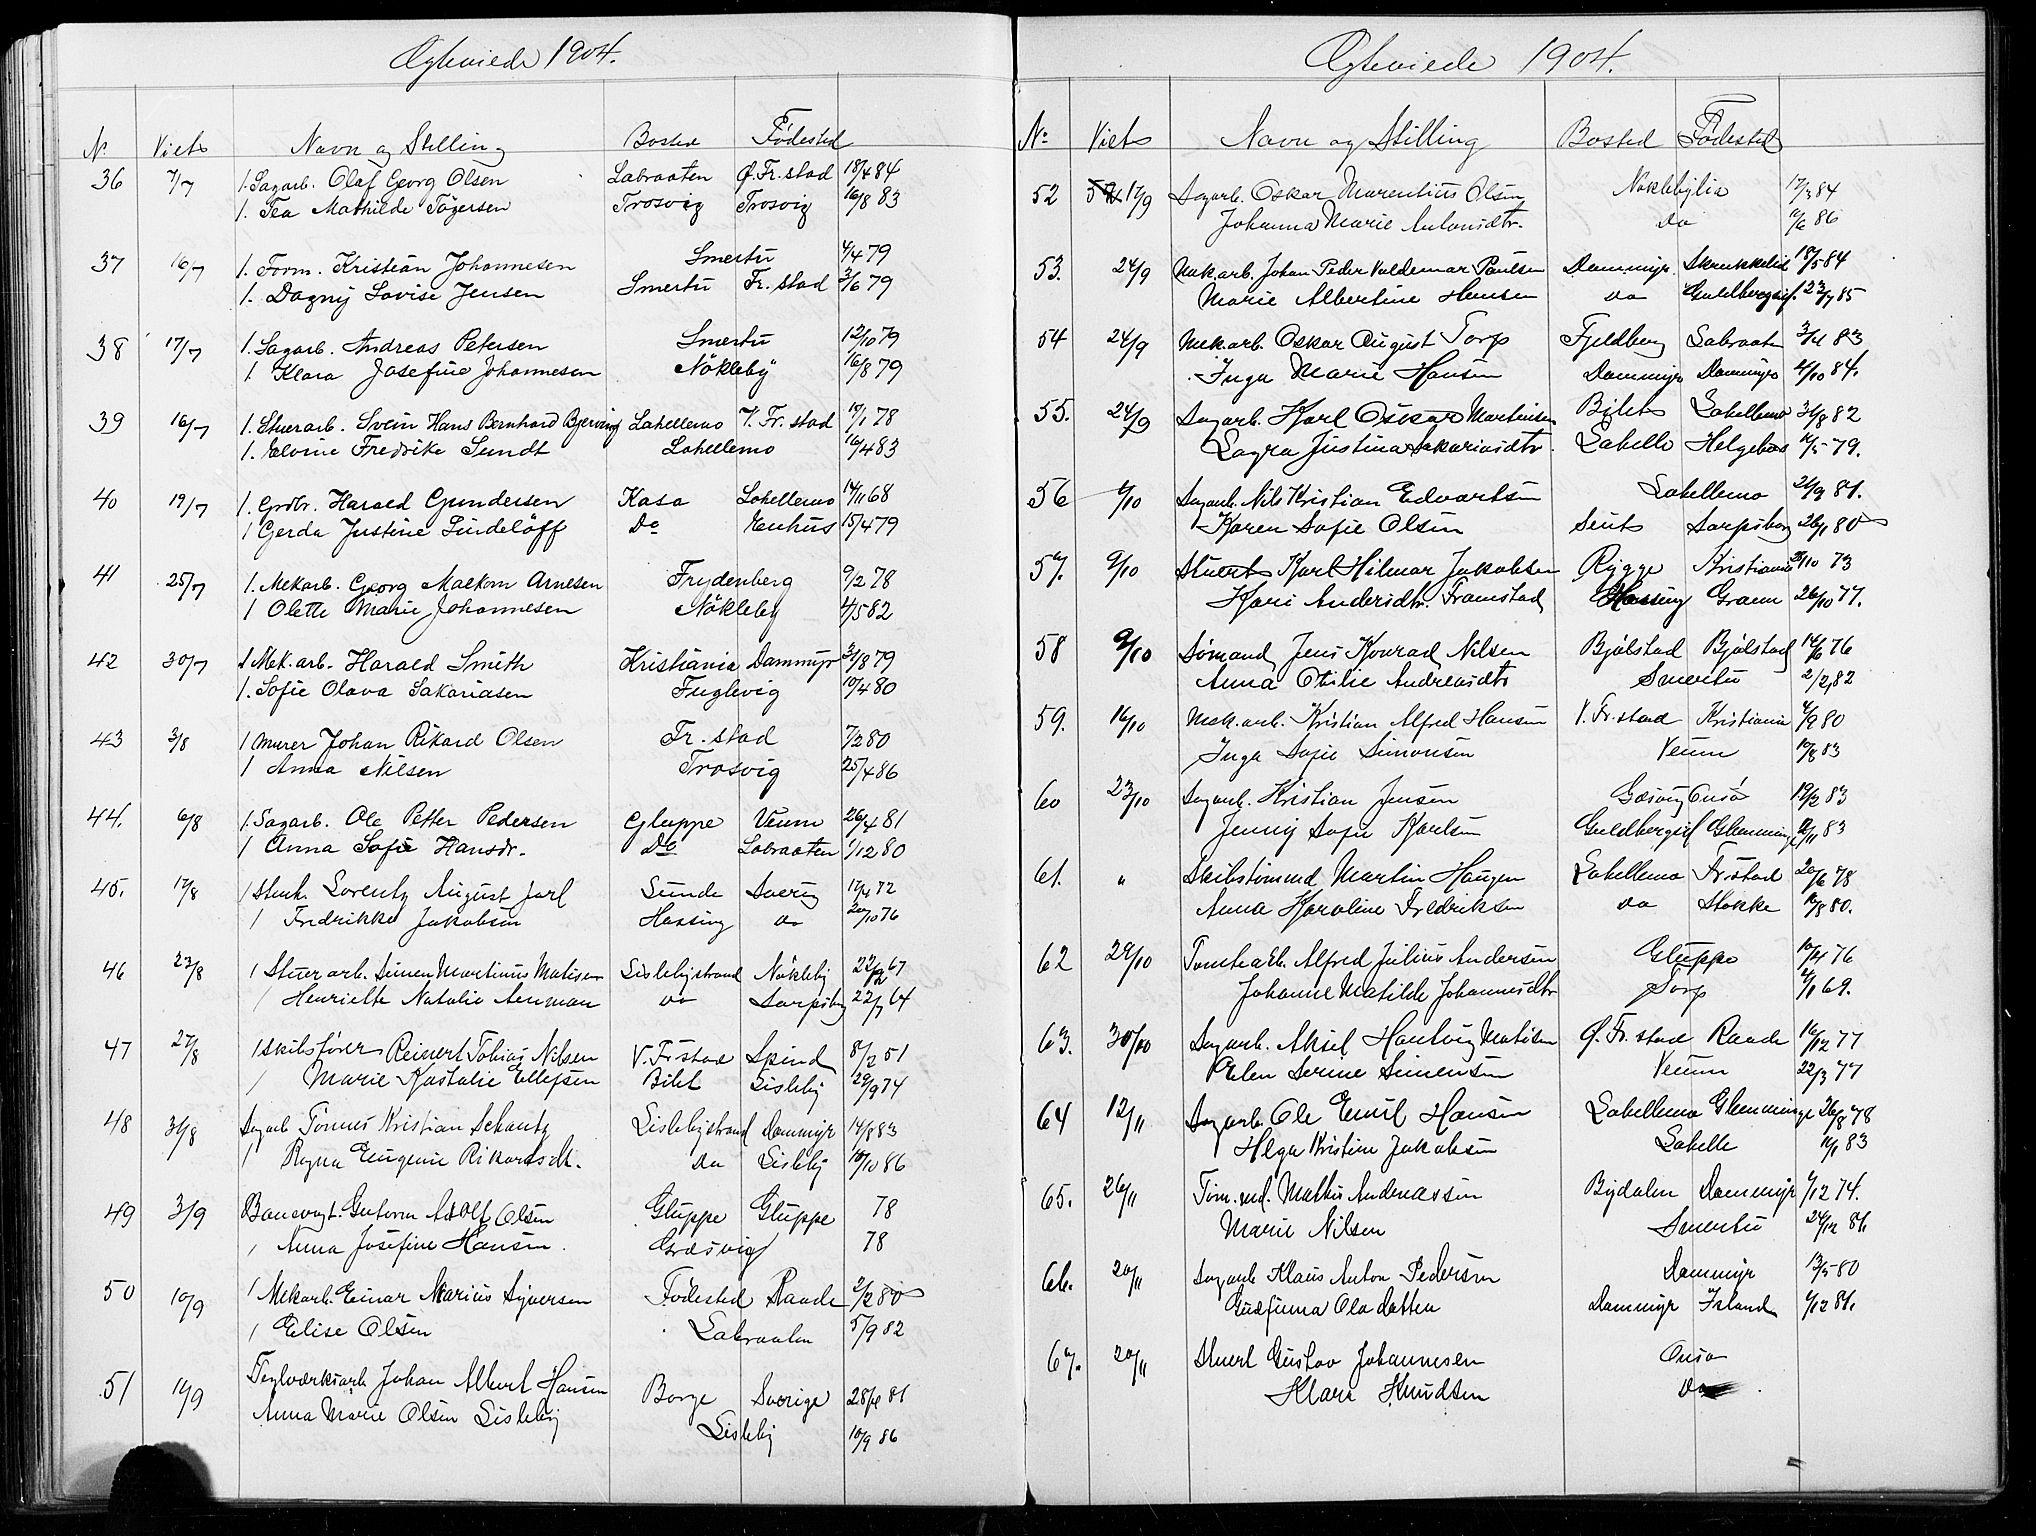 Ægteviede 1904.
No Viets Navn og Stilling Bosted Fødested
36 7/7 1. Sagarb. Olaf Georg Olsen Labraaten Ø. Fr. stad 18/4 84
1. Tea Mathilde Tögersen Trosvig Trosvig 16/8 83
37 16/7 1. Form. Kristian Johannesen Smertu 4/4 79
1. Dagny Lovise Jensen Smertu Fr. stad 3/6 79
38 17/7 1. Sagarb. Andreas Petersen Smertu 12/10 79
1 Klara Josefine Johannesen Nökleby 16/8 79
39 16/7 1. Stuerarb. Svein Hans Bernhard Bjerving Lahellemo V. Fr. stad 17/1 78
1. Elvine Fredrike Sundt Lahellemo 16/4 83
40 19/7 1. Grdbr. Harald Gundersen Kasa Lahellemo 14/11 68
1 Gerda Justine Lindelöff Do Enhus 15/4 79
41 25/7 1. Mekarb. Georg Malkom Arnesen Frydenberg 9/2 78
1 Olette Marie Johannesen Nökleby 4/5 82
42 30/7 1 Mek. arb. Harald Smith Kristiania Dammyr 31/8 79
1. Sofie Olava Sakariasen Fuglevig 10/4 80
43 3/8 1 Murer Johan Rikard Olsen Fr. stad 7/2 80
1 Anna Nilsen Trosvig 25/4 86
44. 6/8 1. Sagarb. Ole Petter Pedersen Gluppe Veum 26/4 81
1 Anna Sofie Hansdr. Do Labraaten 1/12 80
45. 17/8 1 Stuk. Lorentz August Jarl Sunde Sverig 17/4 72
1 Fredrikke Jakobsen Hassing do 20/10 76
46 23/8 1 Stuerarb. Simen Martinus Matisen Lislebystrand Nökleby 22/12 67
1 Henriette Natalie Aenman do Sarpsborg 22/7 64
47 27/8 1 Skibsförer Reinert Tobias Nilsen V. Frstad Spind 8/2 51
1 Marie Kastalie Ellefsen Bilet Lisleby 29/9 74
48 31/8 Sagarb Tönnes Kristian Schantz Lislebystrand Dammyr 14/8 83
1 Ragna Eugenie Rikardsdt. Do Lisleby 10/10 86
49 3/9 Banevogt. Gustava Adolf Olsen Gluppe Gluppe 78
1 Anna Josefine Hansen. Græsvig 78
50 10/9 1 Mekarb. Einar Marius Syversen Födested Raade 2/2 80
1 Elise Olsen Labraaten 5/9 82
51 11/9 Teglværksarb. Johan Albert Hansen Borge Sverige 28/4 81
Anna Marie Olsen Lisleby Lisleby 10/9 86
Ægteviede 1904.
No Viets Navn og Stilling Bosted Fødested
52 17/9 Sagarb. Oskar Marentius Olsen Noklebylia 17/3 84
Johanna Marie Antonsdtr. do 11/6 86
53. 24/9 Mek.arb. Johan Peder Valdemar Paulsen Dammyr. Skrukkelid 18/5 84
Marie Albertine Hansen do Guldbergsif. 23/7 85
54 24/9 Mek.arb. Oskar August Torp Fjeldberg Labraaten 3/11 83
Inga Marie Hansen Dammyr Dammyr 4/10 84.
55. 24/9 Sagarb. Karl Oskar Martinsen Bilet Lahellemo 31/8 82
Lagra Justina Sakariasdtr. Lahelle Helgeboe 11/5 79.
56 1/10 Sagarb. Nils Kristian Edvartsen Lahellemo 24/9 81.
Karen Sofie Olsen Seut Sarpsborg 26/1 80
57. 9/10 Stuert Karl Hilmar Jakobsen Rygge Kristiania 28/10 73
Kari Andersdtr. Framstad Hassing Gran 26/10 77.
58 9/10 Sömand Jens Konrad Nilsen Bjölstad Bjölstad 14/6 76
Anna Otilie Andreasdtr Smertu 2/2 82
59. 16/10 Mek.arb. Kristian Alfred Hansen V. Fr. stad Kristiania 4/9 80
Inga Sofie Simonsen Veum 10/8 83
60 23/10 Sagarb. Kristian Jensen Gæsvig Onsö 19/2 83
Jenny Sofie Karlsen Guldbergsif Glemminge 12/11 83
61. " Skibstømmd Martin Haugen Lahellemo Fr.stad 20/6 78
Anna Karoline Fredriksen do Stokke 12/8 80.
62 29/10 Tomtearb. Alfred Julius Andersen Gluppe 10/4 76
Johanne Matilde Johannesdtr Torp 4/1 69.
63. 30/10 Sagarb. Aksel Hartvig Matisen Ø. Fr. stad Raade 16/12 77
Elen Serine Simensen Veum 22/3 77
64 12/11 Sagarb. Ole Emil Hansen Lahellemo Glemminge 26/8 78
Helga Kristine Jakobsen Lahelle 11/1 83
65. 26/11 Töm.md. Mathis Andreassen Bydalen Dammyr 1/12 74.
Marie Nilsen Smertu 24/12 81.
66. 20/11 Sagarb Klaus Anton Pedersen Dammyr 13/5 80
Gudfinna Oladatter Dammyr Island 1/12 81.
67. 20/11 Stuert Gustav Johannesen Onsø
Klara Knudsen do